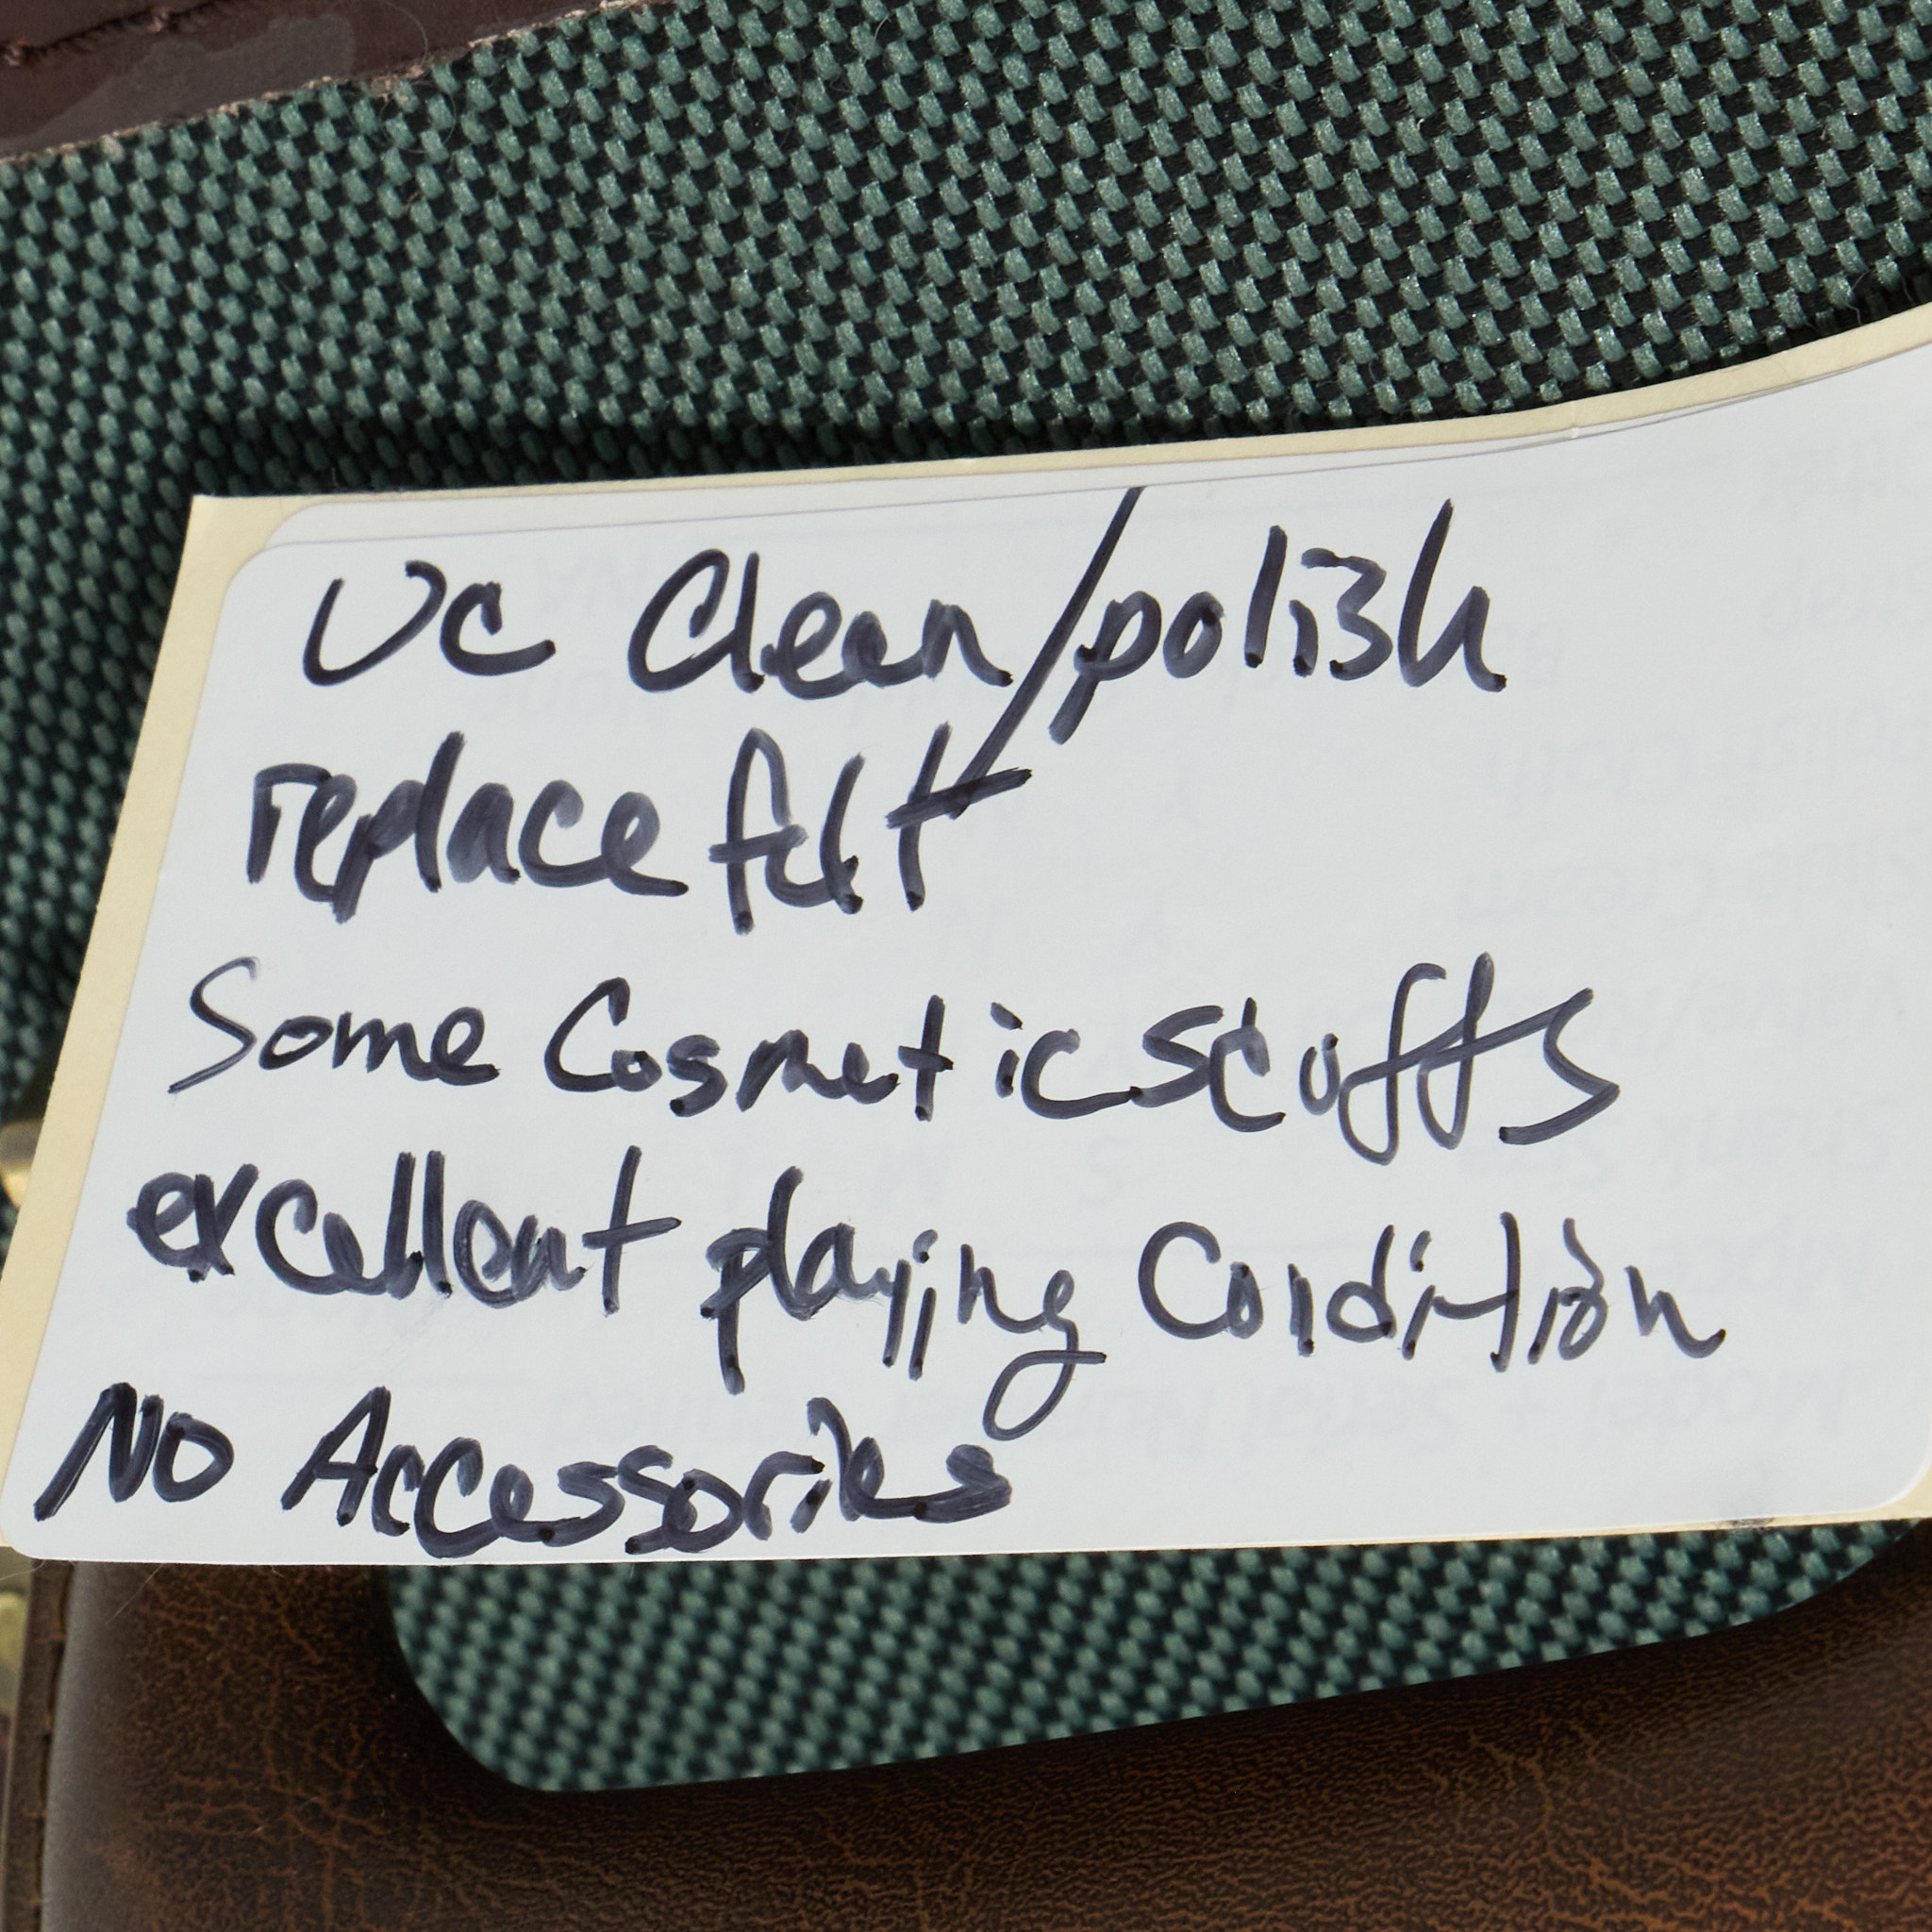 UC Clean/polish
replace felt
Some Cosmetic scuffs
excellent playing Condition
NO Accessories